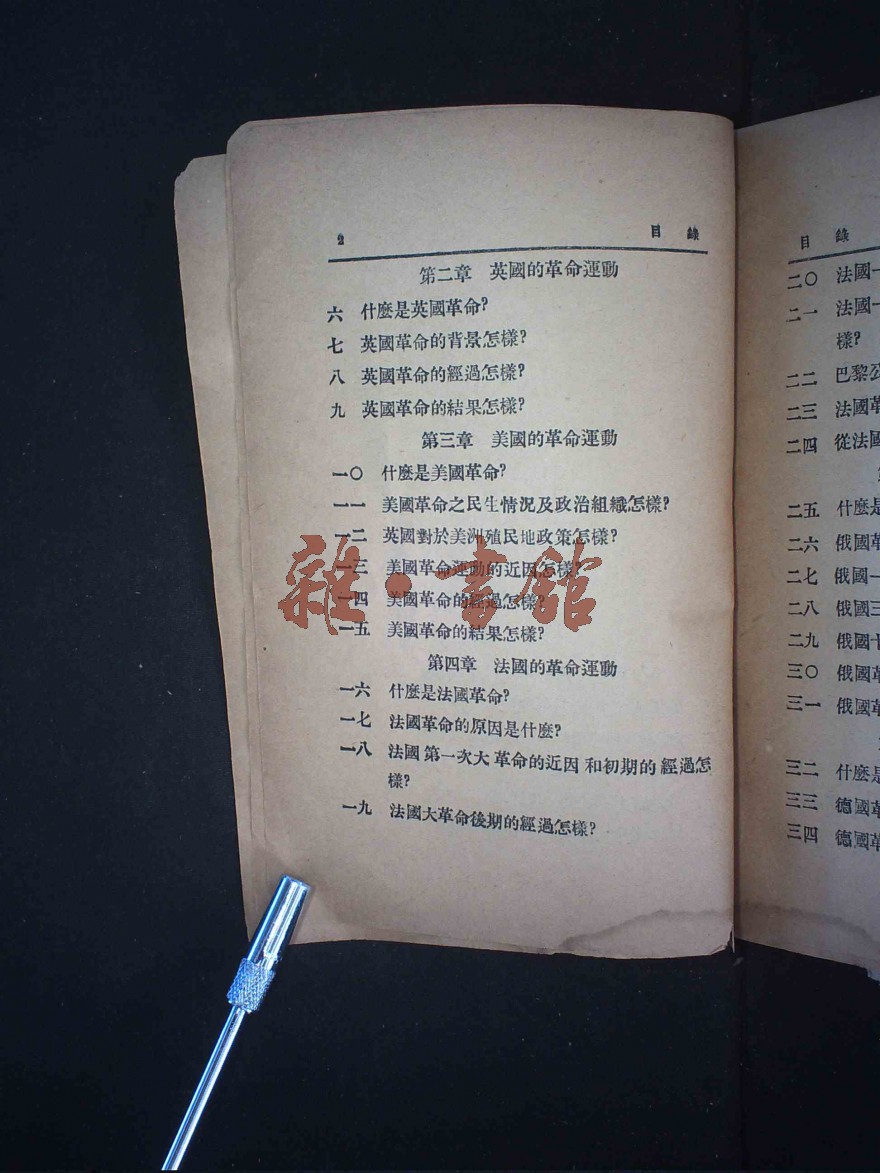 2 目錄
第二章 英國的革命運動
六 什麼是英國革命?
七 英國革命的背景怎樣?
八 英國革命的經過怎樣?
九 英國革命的結果怎樣?
第三章 美國的革命運動
一〇 什麼是美國革命?
一一 美國革命之民生情況及政治組織怎樣?
一二 英國對於美洲殖民地政策怎樣?
一三 美國革命運動的近因怎樣?
一四 美國革命的經過怎樣?
一五 美國革命的結果怎樣?
第四章 法國的革命運動
一六 什麼是法國革命?
一七 法國革命的原因是什麼?
一八 法國第一次大革命的近因和初期的經過怎
樣?
一九 法國大革命後期的經過怎樣?
雜·書館
目錄
二〇 法國一
二一 法國一
樣?
二二 巴黎公
二三 法國革
二四 從法國
二五 什麼是
二六 俄國革
二七 俄國一
二八 俄國三
二九 俄國十
三〇 俄國革
三一 俄國革
三二 什麼是
三三 德國革
三四 德國革